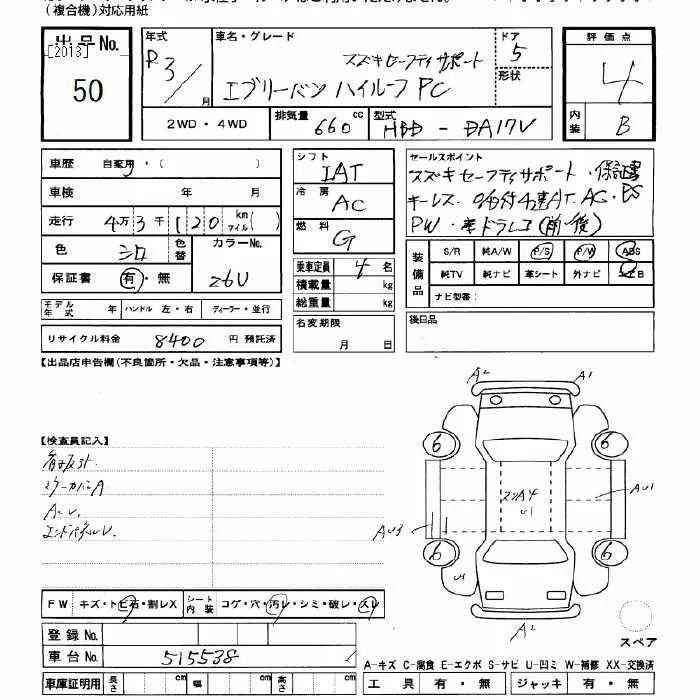 (複合機)対応用紙
出品No.
[2013]
50
年式
R3/
月
車名・グレード
スズキセーフティサポート
エブリーバン ハイルーフ PC
ドア
5
形状
評価点
4
内装
B
2WD・4WD
排気量
660cc
型式
HBD - DA17V
車歴 自家用・( )
車検 年 月
走行 4万3千120 km マイル( )
色 シロ
色替
カラーNo.
26U
保証書 有・無
シフト
IAT
冷房
AC
燃料
G
乗車定員 4 名
積載量 kg
総重量 kg
セールスポイント
スズキセーフティサポート・保証書
キーレス・
PW・ドラレコ(前後)
装備品
S/R 純A/W P/S P/W ABS
純TV 純ナビ 革シート 外ナビ
ナビ型番:
モデル年式 年 ハンドル 左・右 ディーラー・並行
リサイクル料金 8400 円 預託済
名変期限
月 日
後日品
【出品店申告欄(不良箇所・欠品・注意事項等)】
【検査員記入】
ミラーカバーA
AU.
エンドパネルU.
A2
A1
6
6
AU1
AU3
6
6
U1
A2
スペア
FW キズ・トビ石・割レX
シート内装 コゲ・穴・汚レ・シミ・破レ・スレ
登録No.
車台No. 515538
車庫証明用 長さ cm 幅 cm 高さ cm
A-キズ C-腐食 E-エクボ S-サビ U-凹ミ W-補修 XX-交換済
工具 有・無 ジャッキ 有・無